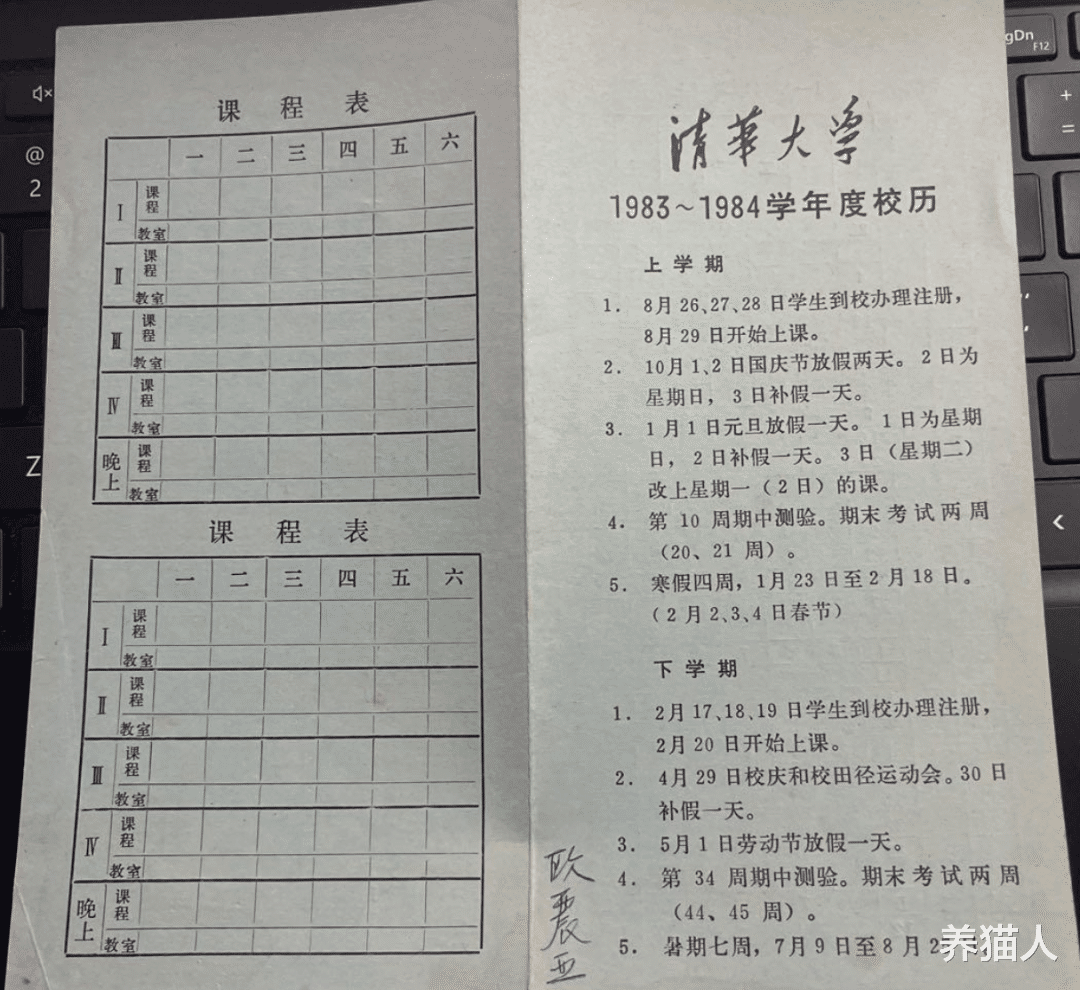 课程表
一 二 三 四 五 六
Ⅰ 课程
教室
Ⅱ 课程
教室
Ⅲ 课程
教室
Ⅳ 课程
教室
晚上 课程
教室
课程表
一 二 三 四 五 六
Ⅰ 课程
教室
Ⅱ 课程
教室
Ⅲ 课程
教室
Ⅳ 课程
教室
晚上 课程
教室
清華大学
1983～1984学年度校历
上学期
1. 8月26、27、28日学生到校办理注册，
8月29日开始上课。
2. 10月1、2日国庆节放假两天。2日为
星期日，3日补假一天。
3. 1月1日元旦放假一天。1日为星期
日，2日补假一天。3日（星期二）
改上星期一（2日）的课。
4. 第10周期中测验。期末考试两周
（20、21周）。
5. 寒假四周，1月23日至2月18日。
（2月2、3、4日春节）
下学期
1. 2月17、18、19日学生到校办理注册，
2月20日开始上课。
2. 4月29日校庆和校田径运动会。30日
补假一天。
3. 5月1日劳动节放假一天。
4. 第34周期中测验。期末考试两周
（44、45周）。
5. 暑期七周，7月9日至8月2
欧震亚
养猫人
gDn
F12
+
=
@
2
Z
<